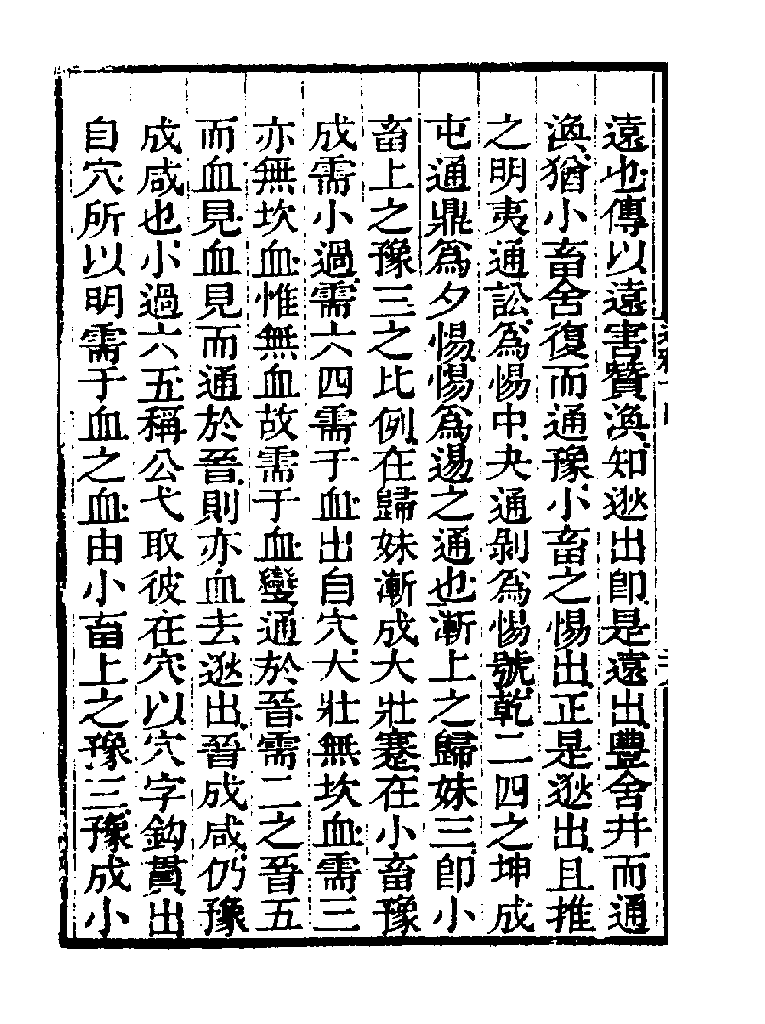 遠也傳以遠害贊渙知逖出卽是遠出豐舍井而通
渙猶小畜舍復而通豫小畜之惕出正是逖出且推
之明夷通訟爲惕中夬通剝爲惕號乾二四之坤成
屯通鼎爲夕惕惕爲逷之通也漸上之歸妹三卽小
畜上之豫三之比例在歸妹漸成大壯蹇在小畜豫
成需小過需六四需于血出自穴大壯無坎血需三
亦無坎血惟無血故需于血變通於晉需二之晉五
而血見血見而通於晉則亦血去逖出晉成咸仍豫
成咸也小過六五稱公弋取彼在穴以穴字鈎貫出
自穴所以明需于血之血由小畜上之豫三豫成小